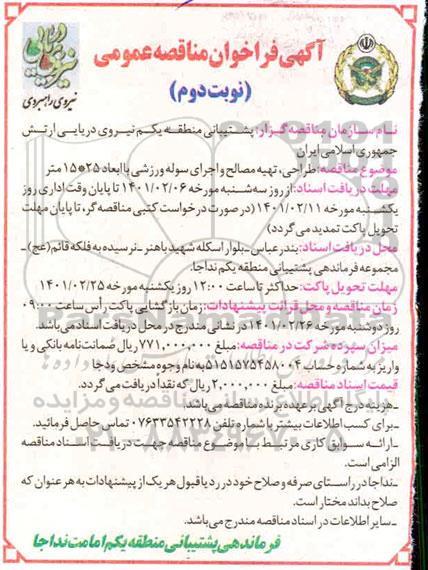 آگهی فراخوان مناقصه عمومی
(نوبت دوم)
نیروی راهبردی
نام سازمان مناقصه گزار: پشتیبانی منطقه یکم نیروی دریایی ارتش
جمهوری اسلامی ایران
موضوع مناقصه: طراحی، تهیه مصالح و اجرای سوله ورزشی با ابعاد ۲۵*۱۵ متر
مهلت دریافت اسناد: از روز سه شنبه مورخه ۱۴۰۱/۰۲/۰۶ تا پایان وقت اداری روز
یکشنبه مورخه ۱۴۰۱/۰۲/۱۱ (در صورت درخواست کتبی مناقصه گر، تا پایان مهلت
تحویل پاکت تمدید می گردد)
محل دریافت اسناد: بندرعباس-بلوار اسکله شهید باهنر-نرسیده به فلکه قائم (عج)-
مجموعه فرماندهی پشتیبانی منطقه یکم نداجا.
مهلت تحویل پاکت: حداکثر تا ساعت ۱۲:۰۰ روز یکشنبه مورخه ۱۴۰۱/۰۲/۲۵
زمان مناقصه و محل قرائت پیشنهادات: زمان بازگشایی پاکت، رأس ساعت ۰۹:۰۰
روز دوشنبه مورخه ۱۴۰۱/۰۲/۲۶ در نشانی مندرج در محل دریافت اسناد می باشد.
میزان سپرده شرکت در مناقصه: مبلغ ۷۷۱,۰۰۰,۰۰۰ ریال ضمانت نامه بانکی و یا
واریز به شماره حساب ۵۱۵۱۵۷۵۴۵۸۰۰۴ به نام وجوه مشخص ودجا
قیمت اسناد مناقصه: مبلغ ۲,۰۰۰,۰۰۰ ریال که نقداً دریافت می گردد.
-هزینه درج آگهی بر عهده برنده مناقصه می باشد.
-برای کسب اطلاعات بیشتر با شماره تلفن ۰۷۶۳۳۵۴۲۲۲۸ تماس حاصل فرمائید.
-ارائه سوابق کاری مرتبط با موضوع مناقصه جهت دریافت اسناد مناقصه
الزامی است.
-نداجا در راستای صرفه و صلاح خود در رد یا قبول هر یک از پیشنهادات به هر عنوان که
صلاح بداند مختار است.
-سایر اطلاعات در اسناد مناقصه مندرج می باشد.
فرماندهی پشتیبانی منطقه یکم امامت نداجا